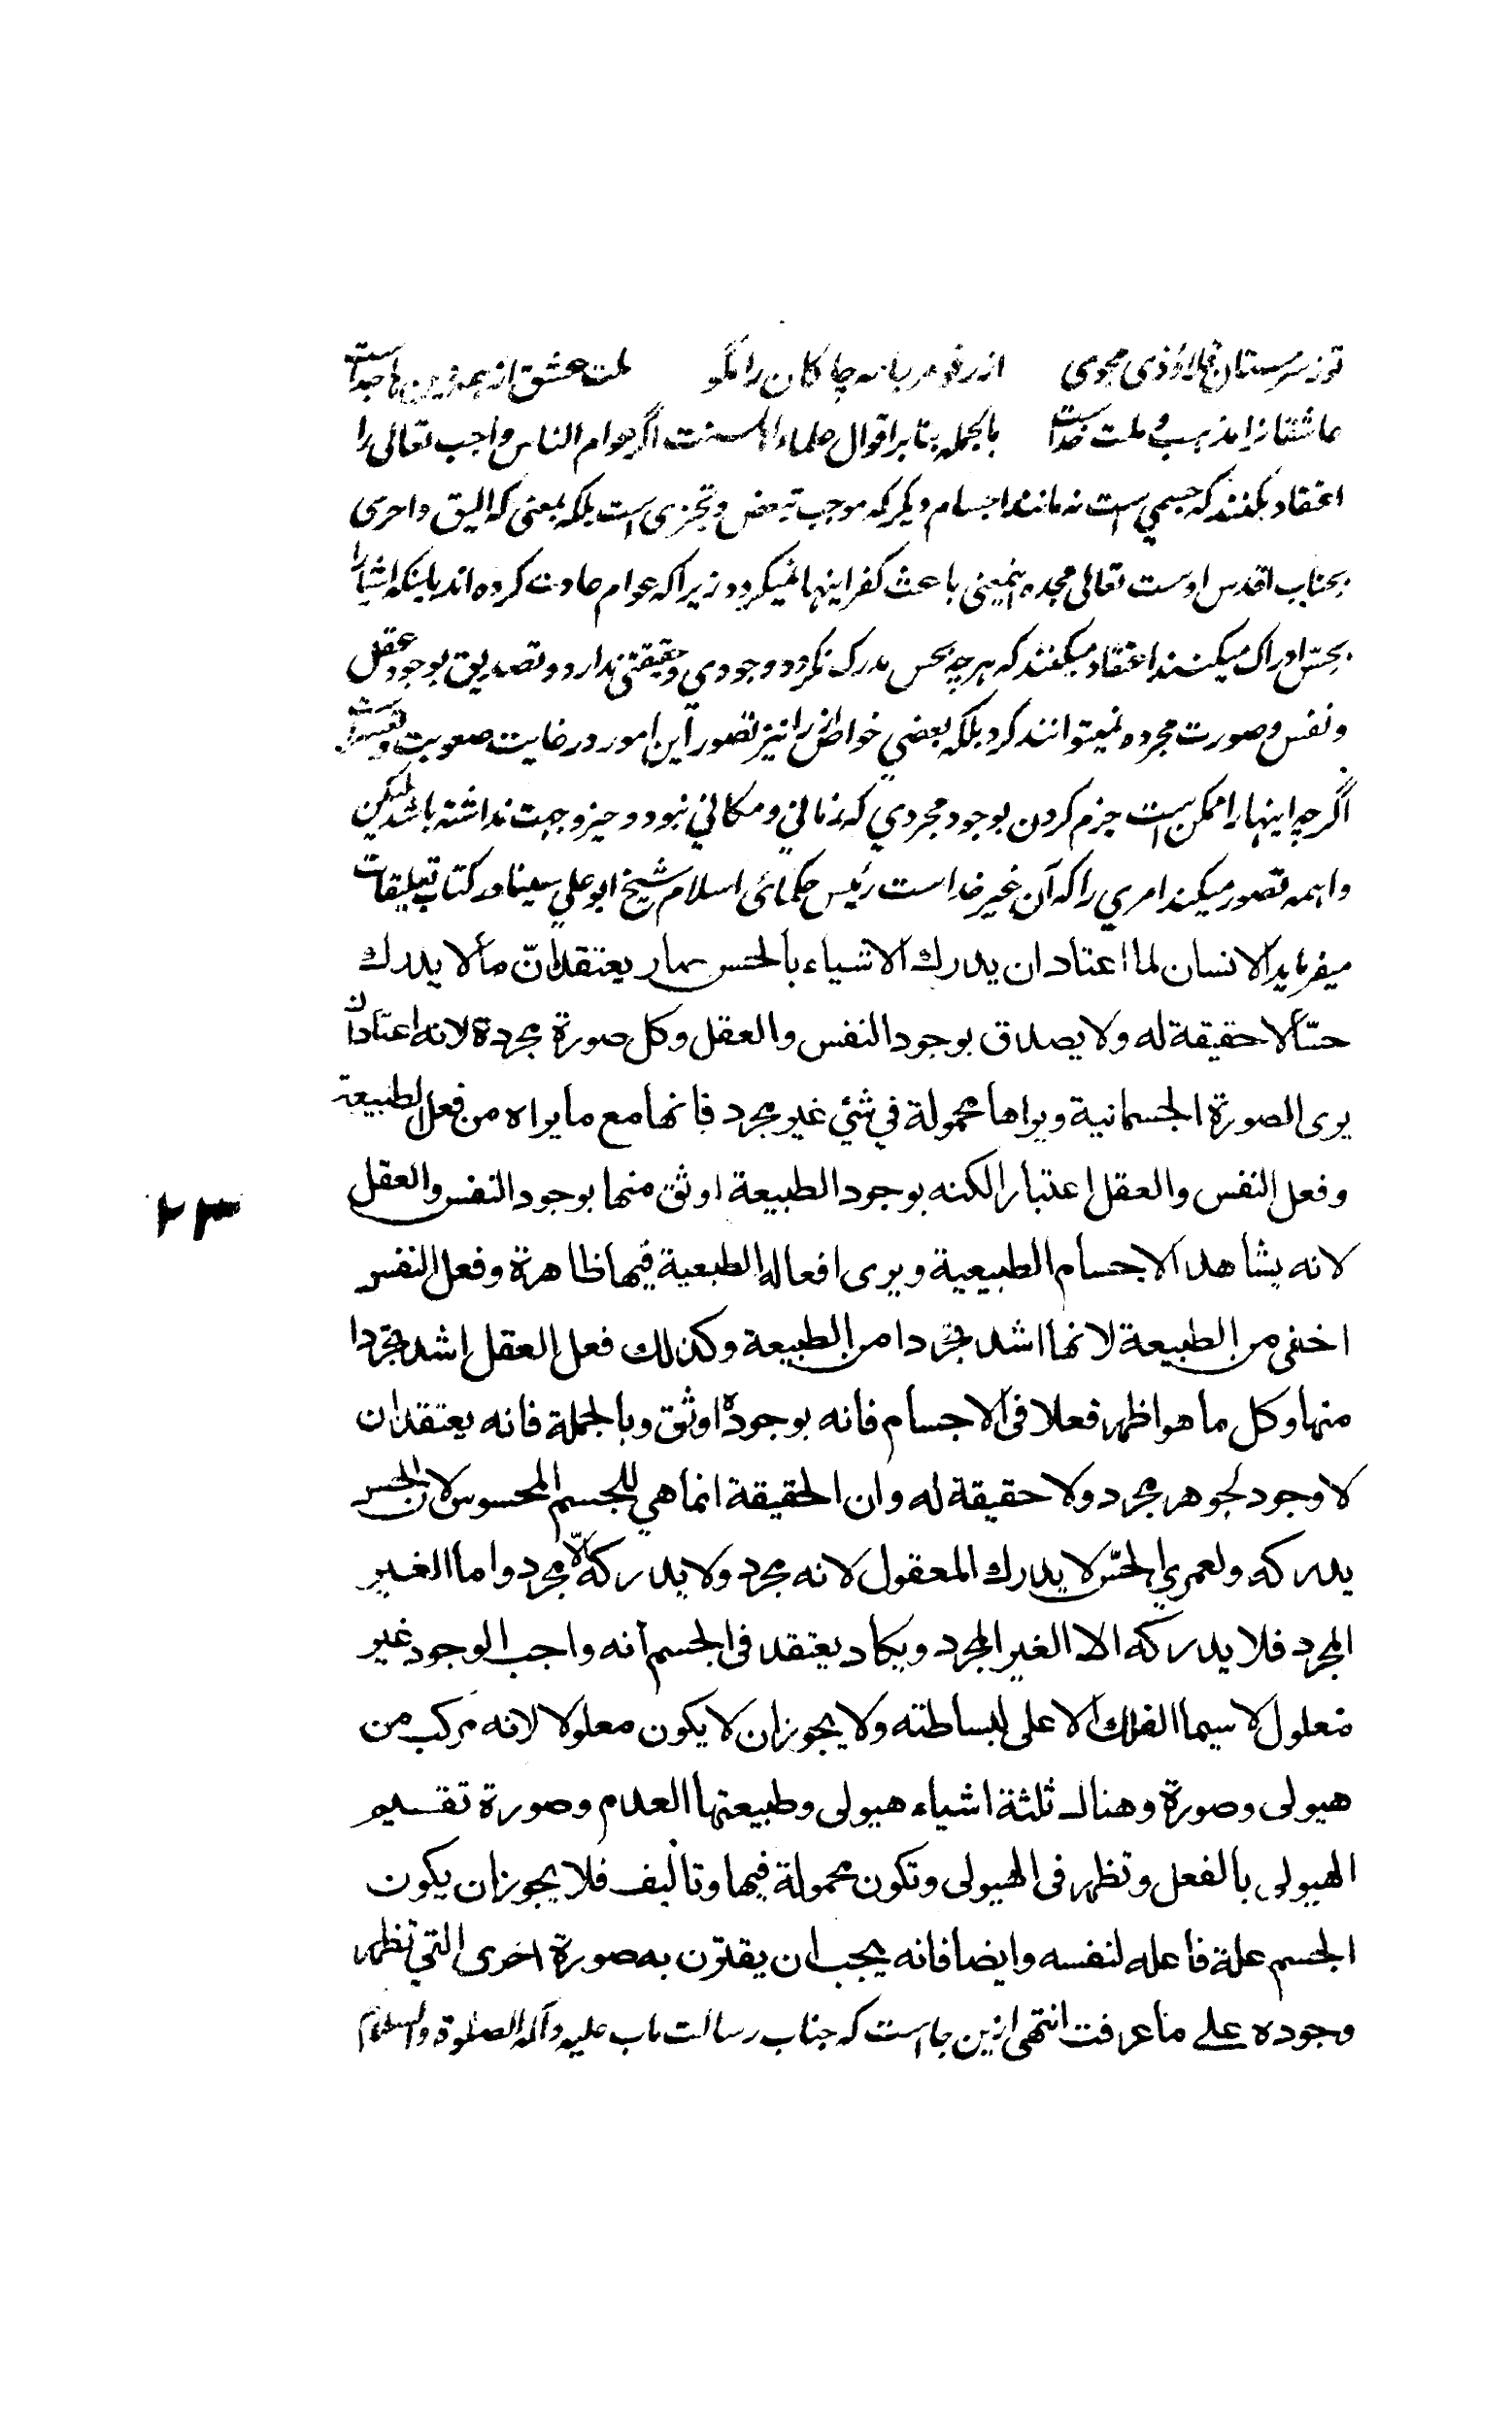 تو ز سرمستان قلاوزی مجوی از رفو مر جامه چاکان را مگو ملت عشق از همه دین ها جداست
عاشقان را مذهب و ملت خداست بالجمله بنا بر اقوال علماء اهلسنت اگر عوام الناس واجب تعالی را
اعتقاد بکنند که جسمی است نه مانند اجسام دیگر که موجب تبعض و تجزی است بلکه بمعنی که الیق و احری
بجناب اقدس اوست تعالی مجده اینمعنی باعث کفر اینها نمیگردد زیرا که عوام عادت کرده اند باینکه اشیا را
بحسّ ادراک میکنند اعتقاد میکنند که هر چه بحس مدرک نگردد وجودی و حقیقتی ندارد و تصدیق بوجود عقل
و نفس و صورت مجرده نمیتوانند کرد بلکه بعضی خواص را نیز تصور این امور در غایت صعوبت و
اگر چه اینها را ممکن است جزم کردن بوجود مجردی که زمانی و مکانی نبود و حیز و جهت نداشته باشد لیکن
واهمه تصور میکند امری را که آن غیر خداست رئیس حکمائی اسلام شیخ ابو علی سینا در کتاب تعلیقات
میفرماید الانسان لما اعتاد ان یدرك الاشیاء بالحس صار یعتقد انّ ما لا یدرك
حسّا لا حقیقة له ولا یصدق بوجود النفس والعقل وکل صورة مجردة لانه اعتاد ان
یری الصورة الجسمانیة ویراها محمولة فی شئی غیر مجرد فانها مع ما یراه من فعل الطبیعة
وفعل النفس والعقل اعتبارا لکنه بوجود الطبیعة اوثق منها بوجود النفس والعقل
لانه یشاهد الاجسام الطبیعیة ویری افعاله الطبعیة فیها ظاهرة وفعل النفس
اخفی من الطبیعة لانها اشد تجردا من الطبیعة وکذلك فعل العقل اشد تجردا
منها وکل ما هو اظهر فعلا فی الاجسام فانه بوجوده اوثق وبالجملة فانه یعتقد ان
لا وجود لجوهر مجرد ولا حقیقة له وان الحقیقة انما هی للجسم المحسوس لان الحس
یدرکه ولعمری الحسّ لا یدرك المعقول لانه مجرد ولا یدرکه الّا مجرد واما الغیر
المجرد فلا یدرکه الا الغیر المجرد ویکاد یعتقد فی الجسم انه واجب الوجود غیر
معلول لا سیما الفلك الاعلی لبساطته ولا یجوز ان لا یکون معلولا لانه مرکب من
هیولی وصورة وهناك ثلثة اشیاء هیولی وطبیعتها العدم وصورة تقسیم
الهیولی بالفعل وتظهر فی الهیولی وتکون محمولة فیها وتألیف فلا یجوز ان یکون
الجسم علة فاعله لنفسه وایضا فانه یجب ان یقترن به صورة اخری التی تظهر
وجوده علی ما عرفت انتهی ازین جا است که جناب رسالت ماب علیه وآله الصلوة والسلام
٢٣